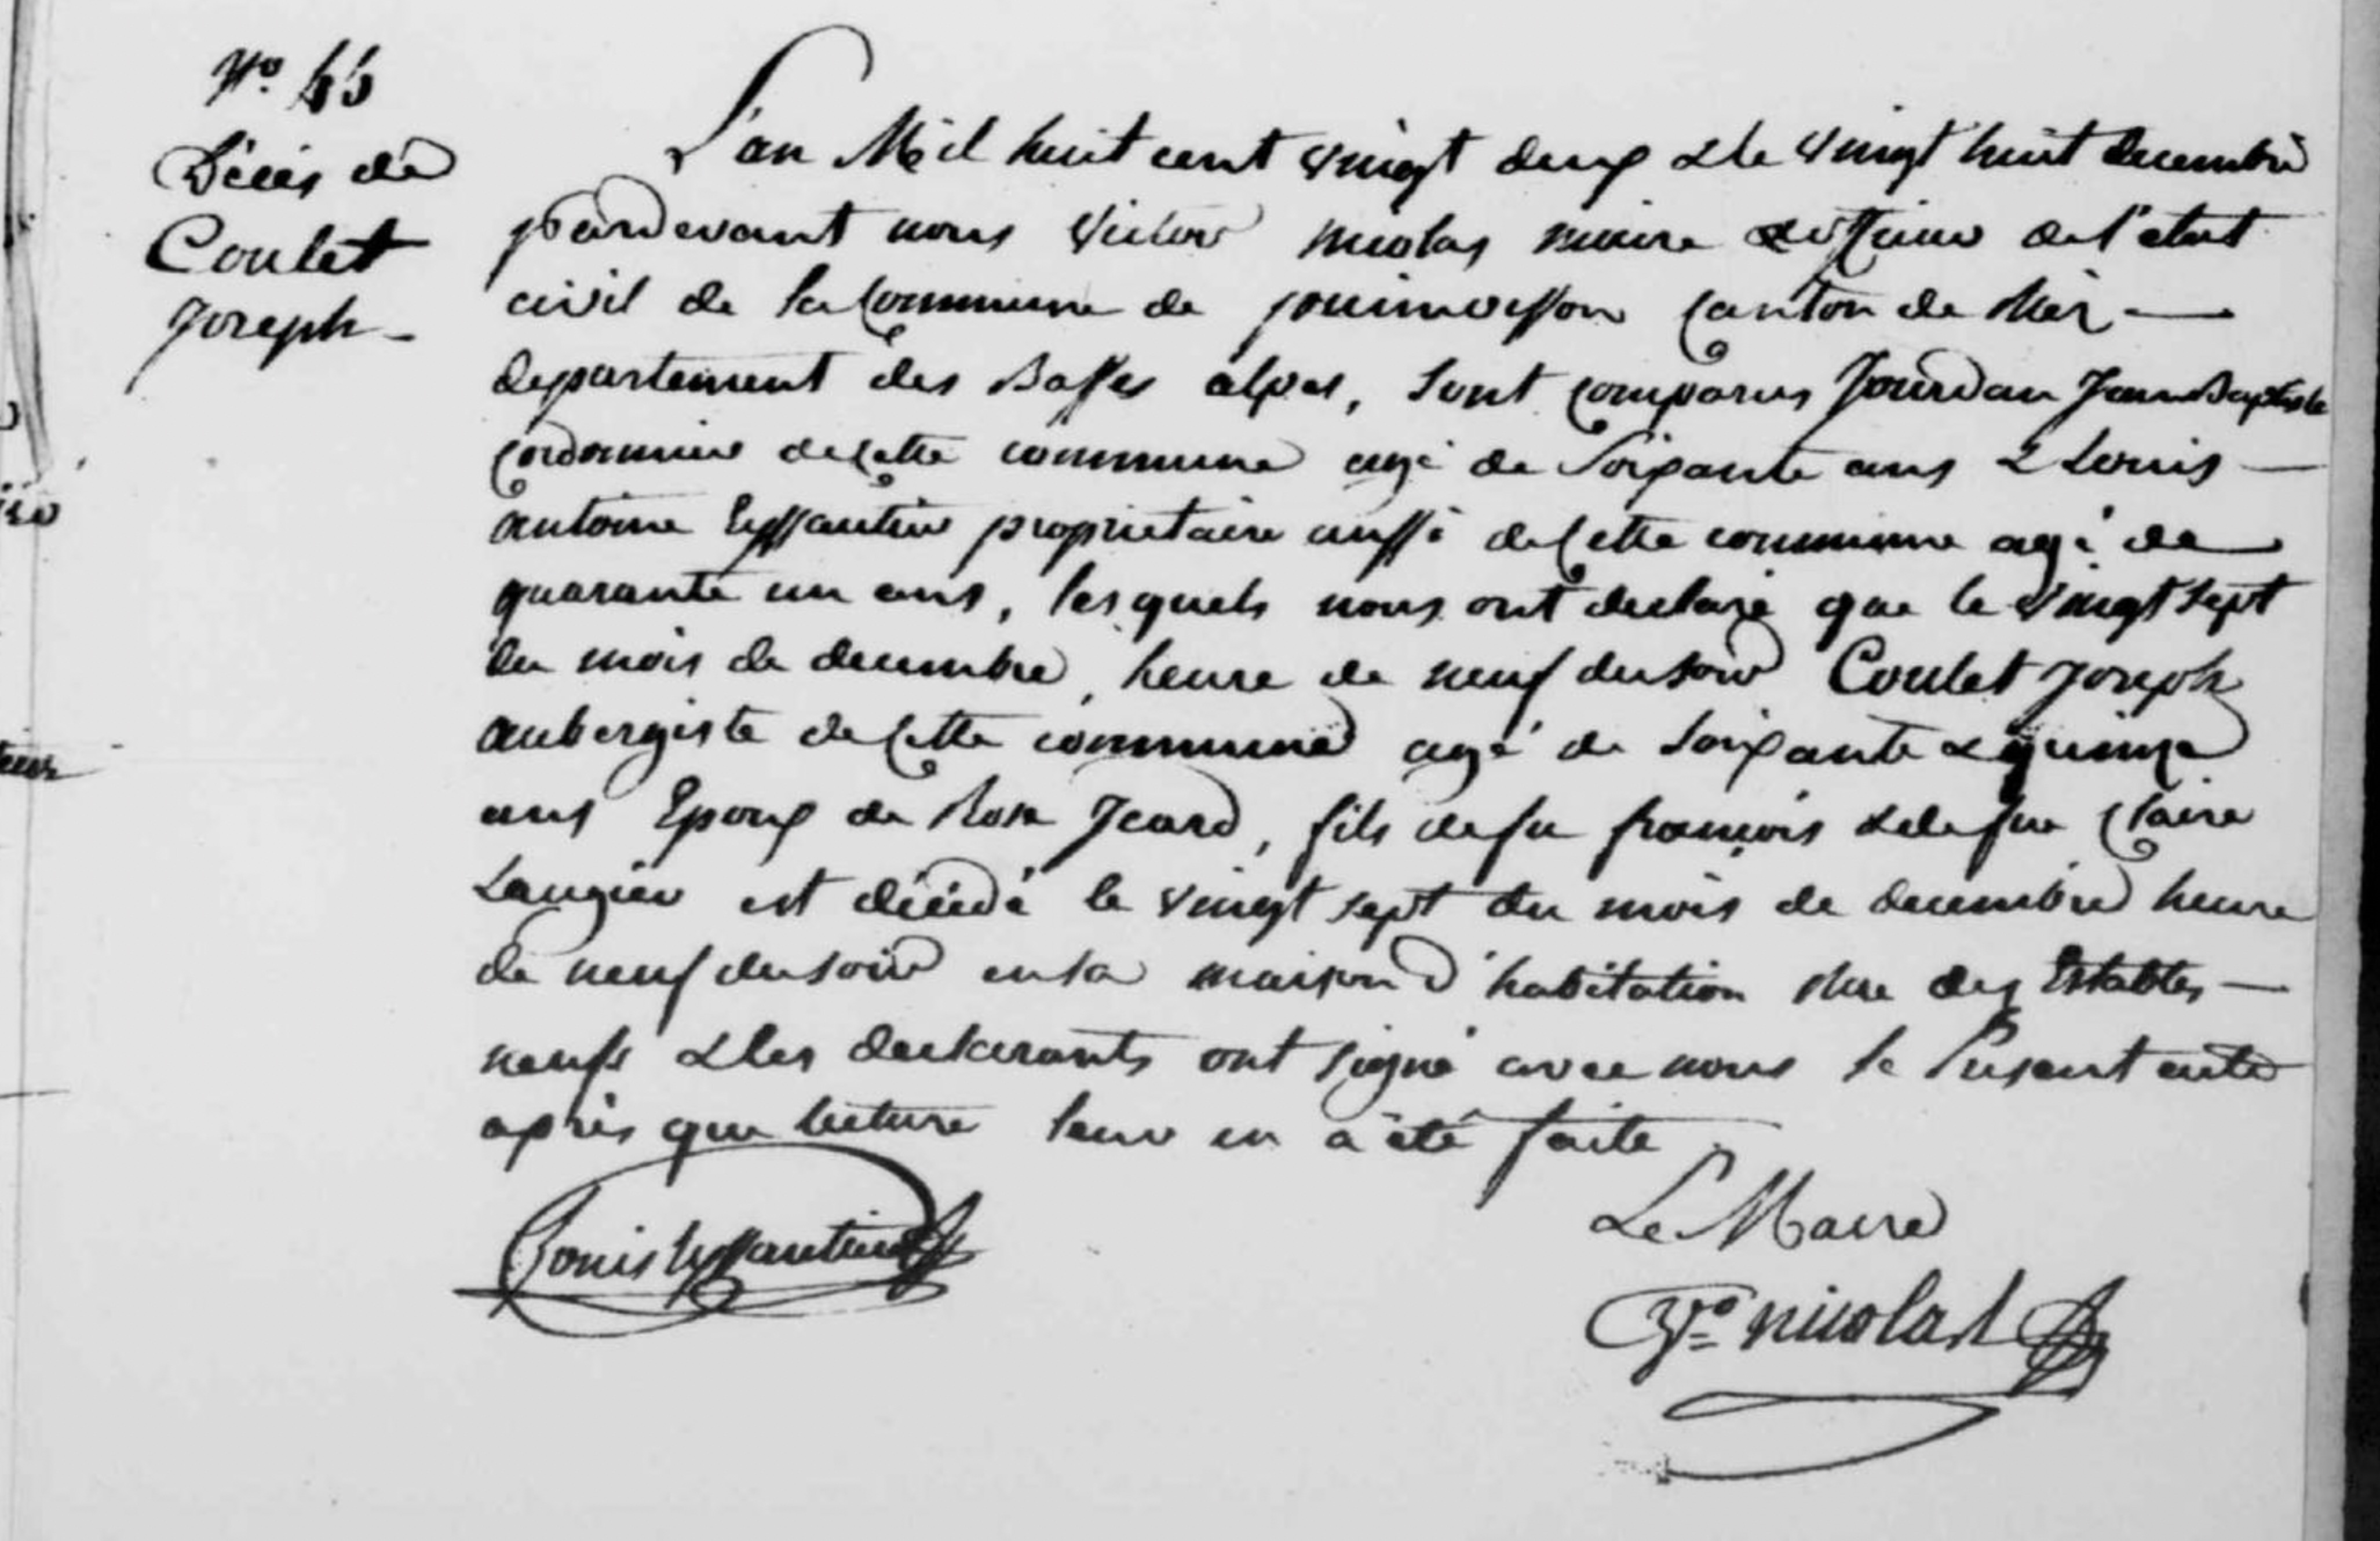 N.o
Décès de
Coulet
Joseph
L'an Mil huit cent vingt deux & le vingt huit decembre
pardevant nous Victor nicolas maire officier de l'etat
civil de la Commune de puimoisson Canton de
departement des Basses alpes, sont comparus Jourdan Jean Baptiste
Cordonnier de Cette commune agé de Soixante ans & Louis
antoine Eyssautier proprietaire aussi de Cette commune agé de
quarante un ans, lesquels nous ont declaré que le vingt sept
du mois de decembre, heure de neuf du soir Coulet Joseph
aubergiste de Cette commune agé de Soixante & quinze
ans Epoux de Rose Jeard, fils de fu françois & de fue Claire
Laugier est décédé le vingt sept du mois de decembre heure
de neuf du soir en sa maison d'habitation Rue des Estables
neufs & les declarants ont signé avec nous le Present acte
après que lecture leur en a été faite
Louis Eyssautier
Le Maire
nicolas